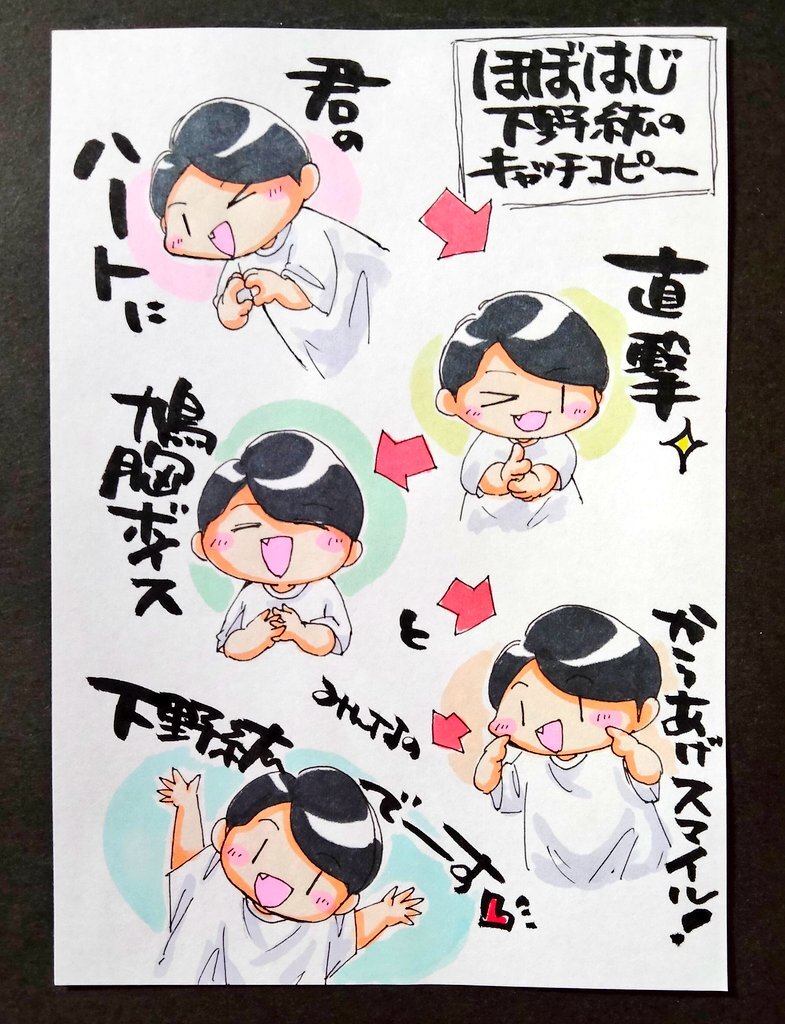 ほぼはじ
下野紘の
キャッチコピー
君の
ハートに
直撃
鳩胸ボイス
と
からあげスマイル!
みんなの
下野紘
でーす